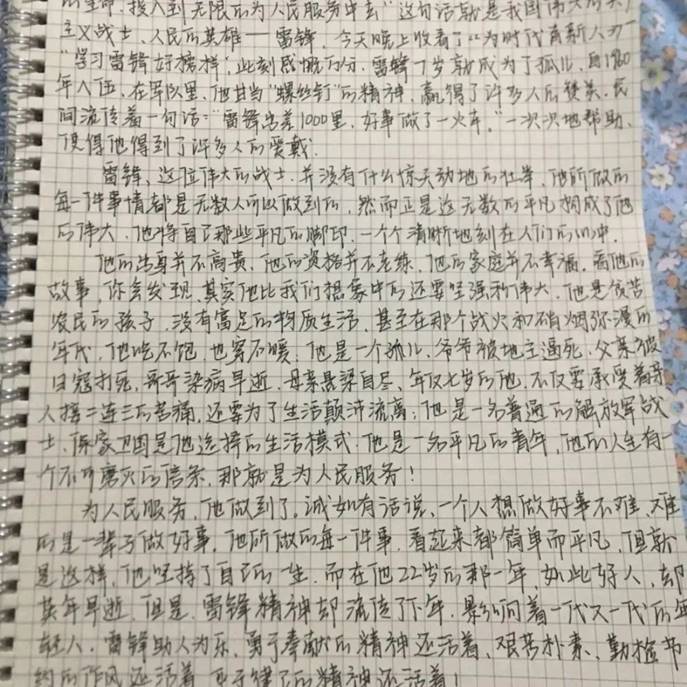 的生命,投入到无限的为人民服务中去"这句话就是我国伟大的共
主义战士、人民的英雄——雷锋,今天晚上收看了"为时代育新人
"学习雷锋好榜样",此刻感慨万分,雷锋7岁就成为了孤儿,自1960
年入伍,在军队里,他甘当"螺丝钉"的精神,赢得了许多人的赞美.民
间流传着一句话:"雷锋出差1000里,好事做了一火车。"一次次地帮助,
使得他得到了许多人的爱戴.
雷锋,这位伟大的战士,并没有什么惊天动地的壮举,他所做的
每一件事情都是无数人可以做到的,然而正是这无数的平凡构成了他
的伟大,他将自己那些平凡的脚印,一个个清晰地刻在人们的心中.
他的出身并不高贵,他的资格并不老练,他的家庭并不幸福,看他的
故事,你会发现,其实他比我们想象中的还要坚强和伟大,他是贫苦
农民的孩子,没有富足的物质生活,甚至在那个战火和硝烟弥漫的
年代,他吃不饱,也穿不暖,他是一个孤儿,爷爷被地主逼死,父亲被
日寇打死,哥哥染病早逝,母亲悬梁自尽,年仅七岁的他,不仅要承受着亲
人接二连三的苦痛,还要为了生活颠沛流离;他是一名普通的解放军战
士,保家卫国是他选择的生活模式;他是一名平凡的青年,他的人生有一
个不可磨灭的信条,那就是为人民服务!
为人民服务,他做到了,诚如有话说,一个人想做好事不难,难
的是一辈子做好事,他所做的每一件事,看起来都简单而平凡,但就
是这样,他坚持了自己的一生,而在他22岁的那一年,如此好人,却
英年早逝,但是,雷锋精神却流传了下年,影响着一代又一代的年
轻人,雷锋助人为乐、勇于奉献的精神还活着,艰苦朴素、勤俭节
约的作风还活着,严于律己的精神还活着!